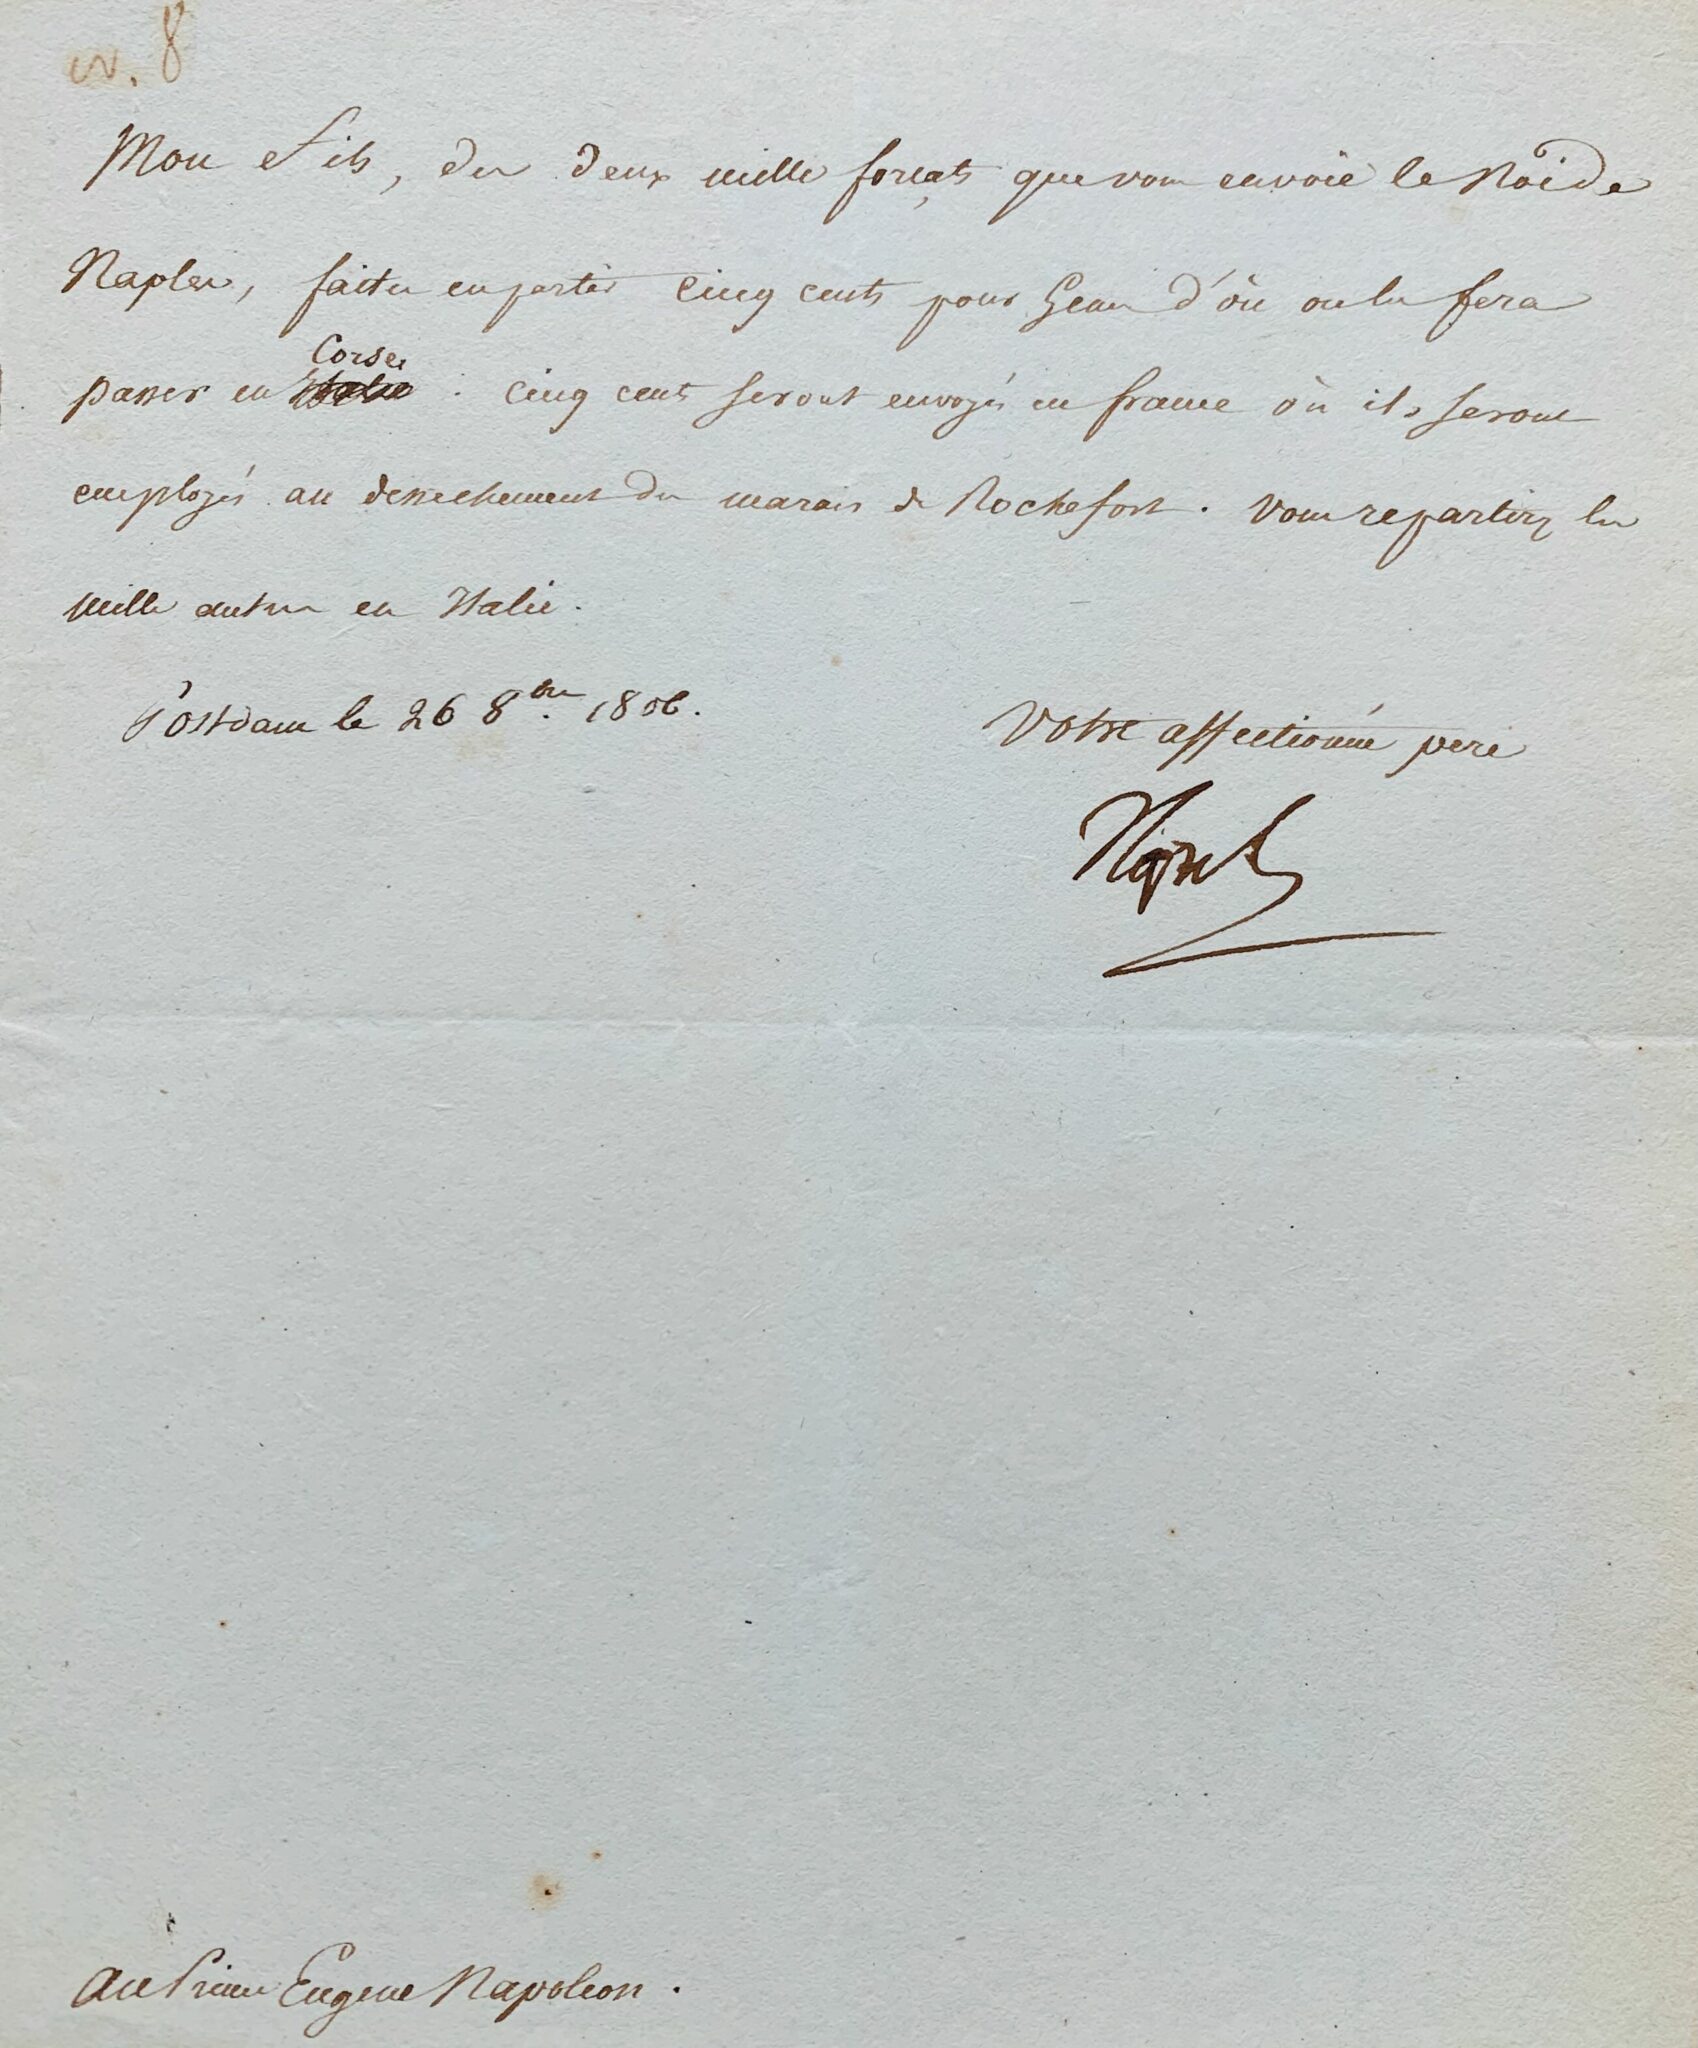 8
Mon Fils, des deux mille forçats que vous envoie le Roi de
Naples, faites en partir cinq cents pour Genes d'où on les fera
passer en Corse. Cinq cents seront envoyés en france où ils seront
employés au dessechement des marais de Rochefort. Vous repartirez les
mille autres en Italie.
Postdam le 26 8bre. 1806.
Votre affectionné pere
Napol
Au Prince Eugene Napoleon.